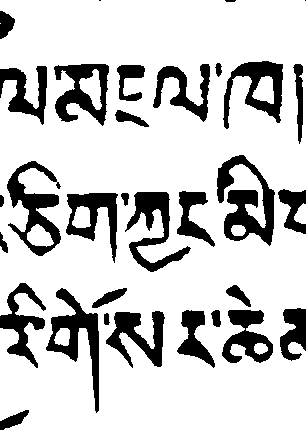 ལ་མངལ་ཁ།
ཅིག་ཀྱང་མི
རི་གེ་སར་ཆེ